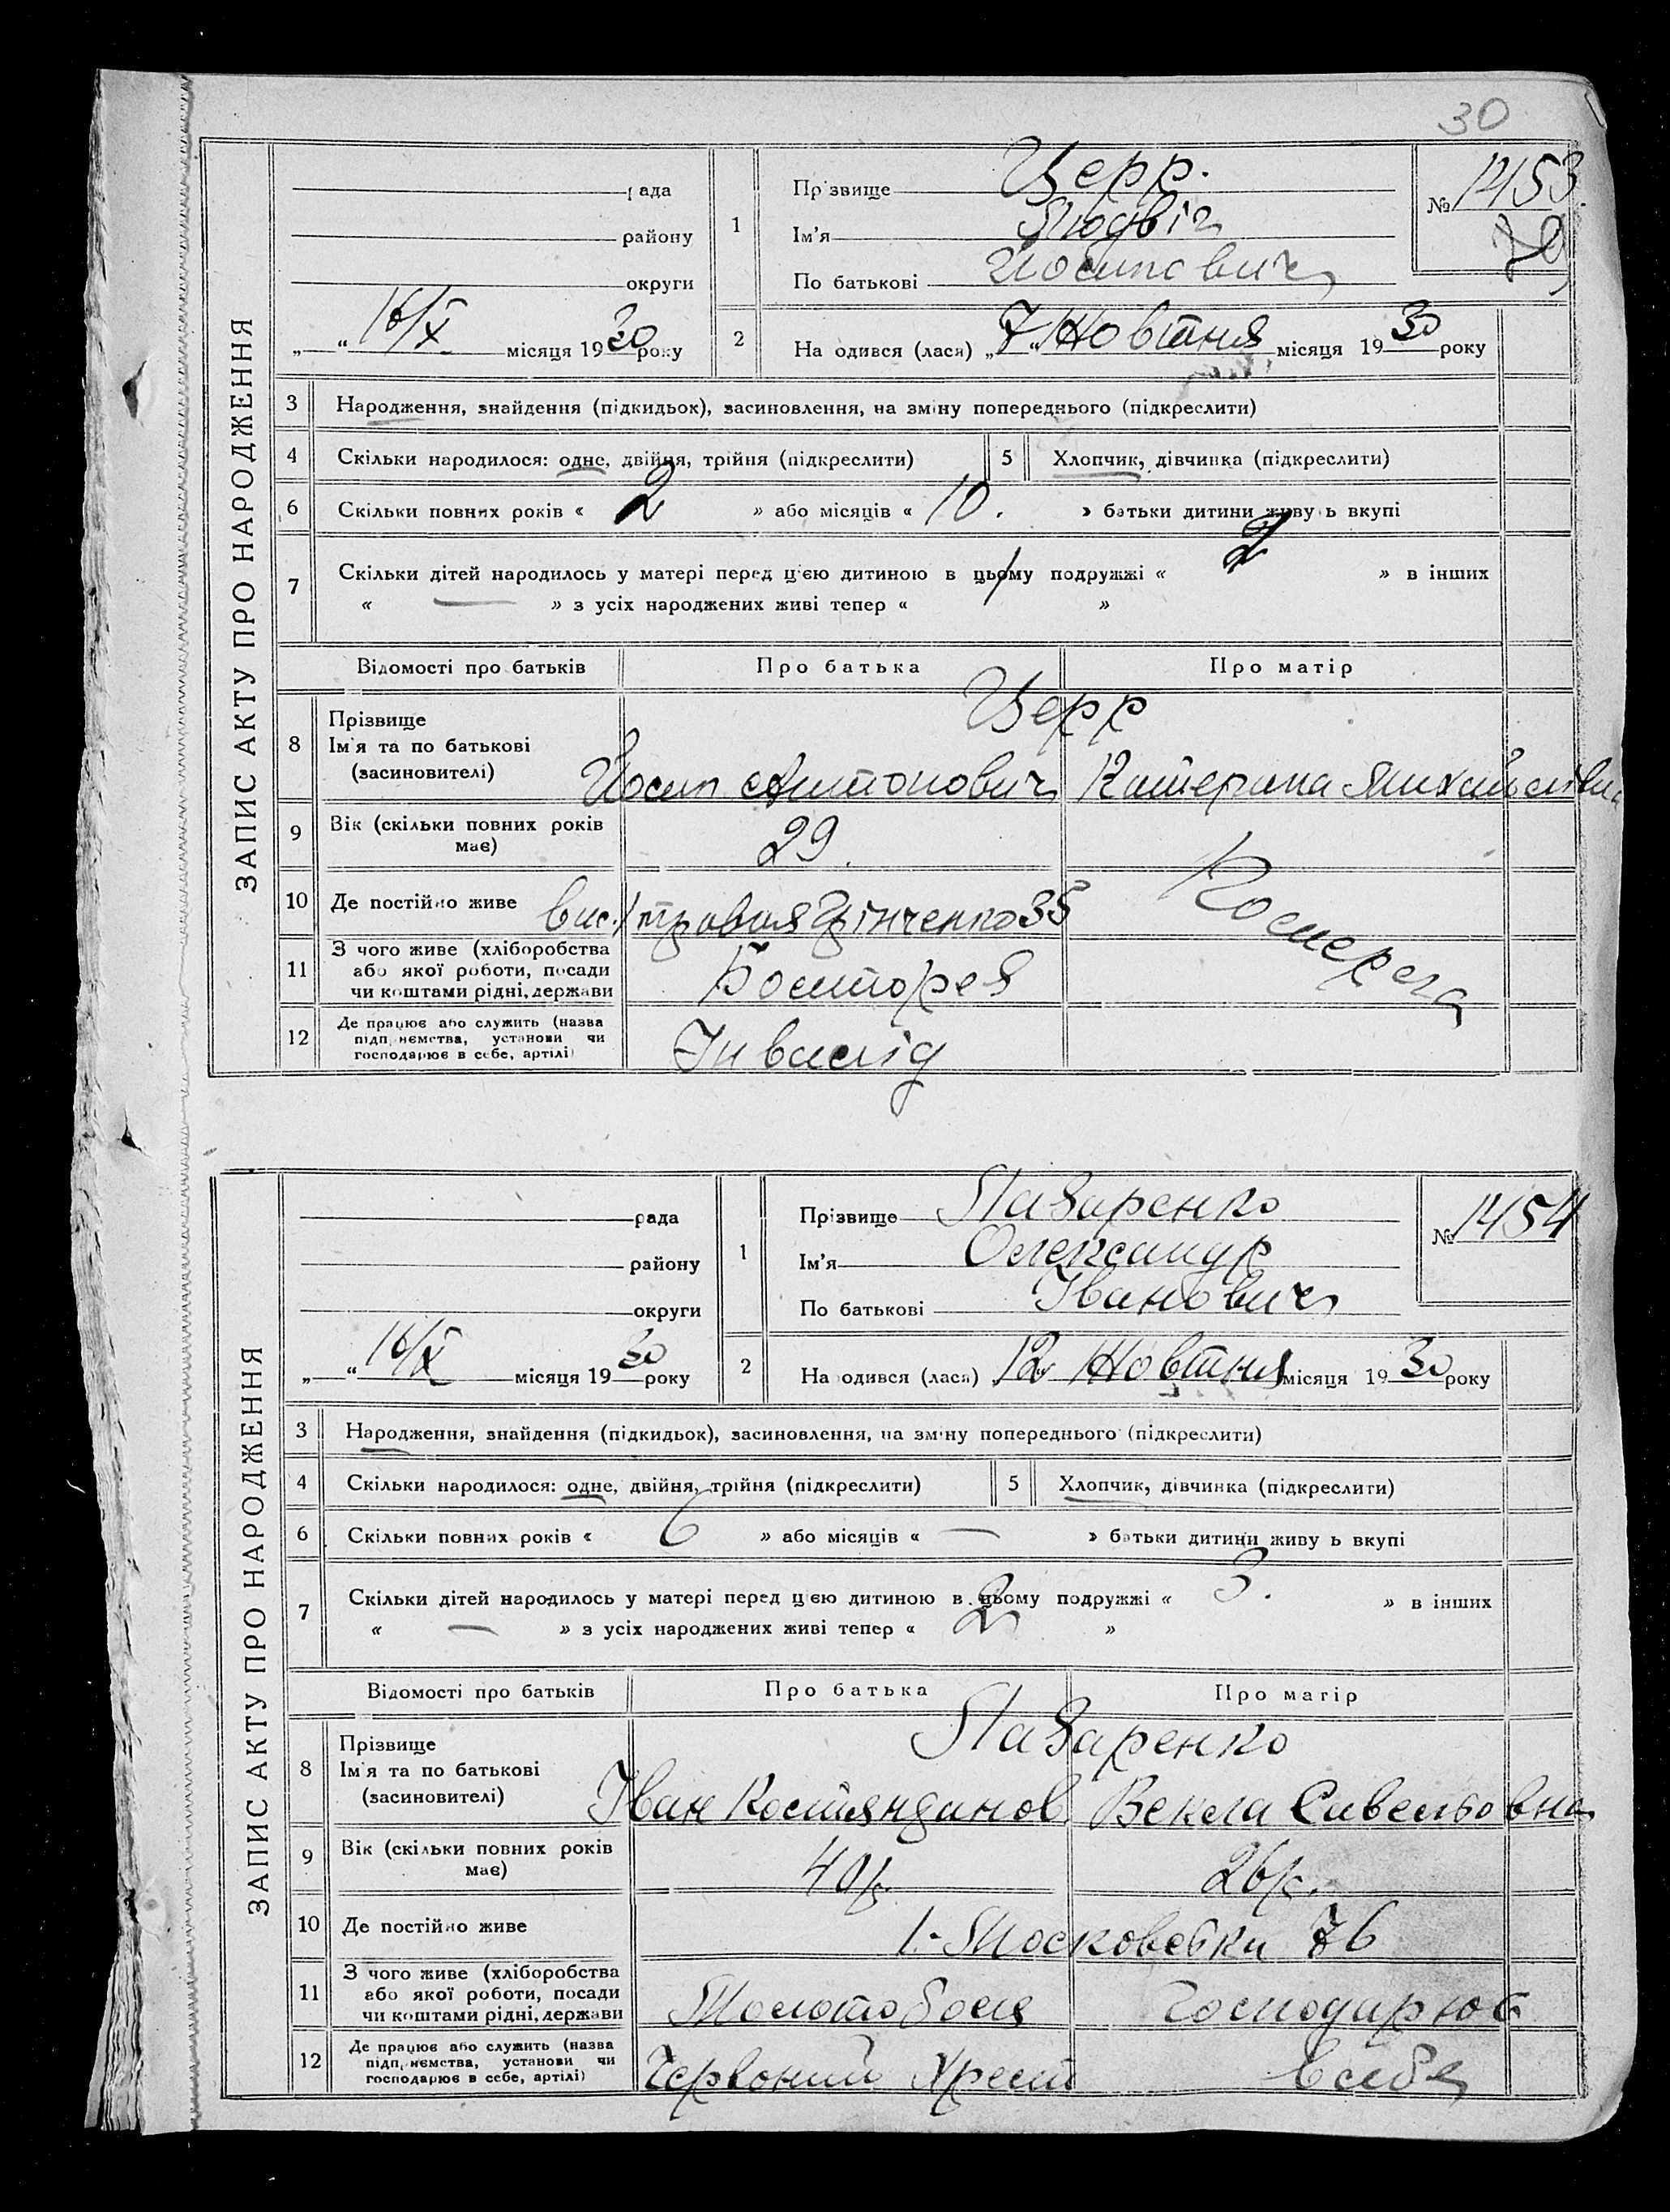 30
ЗАПИС АКТУ ПРО НАРОДЖЕННЯ
рада
району
округи
„ “ 16/X місяця 1930 року
1
Прізвище Церр.
Ім'я Людвіг
По батькові Йосипович
№ 1453
2
На одився (лася) „7“ Жовтня місяця 1930 року
3 Народження, знайдення (підкидьок), засиновлення, на зміну попереднього (підкреслити)
4 Скільки народилося: одне, двійня, трійня (підкреслити) 5 Хлопчик, дівчинка (підкреслити)
6 Скільки повних років « 2 » або місяців « 10. » батьки дитини живу ь вкупі
7 Скільки дітей народилось у матері перед цією дитиною в цьому подружжі « 2 » в інших
« — » з усіх народжених живі тепер « 1 »
Відомості про батьків Про батька Про матір
8 Прізвище
Ім'я та по батькові
(засиновителі)
Церр
Йосип Антонович Катерина Михайлівна
9 Вік (скільки повних років має) 29.
10 Де постійно живе Грінченко 35
11 З чого живе (хліборобства
або якої роботи, посади
чи коштами рідні, держави
12 Де працює або служить (назва
підприємства, установи чи
господарює в себе, артілі)
Інвалід
Померла
ЗАПИС АКТУ ПРО НАРОДЖЕННЯ
рада
району
округи
„ “ 16/X місяця 1930 року
1
Прізвище Лазаренко
Ім'я Олександр
По батькові Іванович
№ 1454
2
На одився (лася) 12 Жовтня місяця 1930 року
3 Народження, знайдення (підкидьок), засиновлення, на зміну попереднього (підкреслити)
4 Скільки народилося: одне, двійня, трійня (підкреслити) 5 Хлопчик, дівчинка (підкреслити)
6 Скільки повних років « 6 » або місяців « — » батьки дитини живу ь вкупі
7 Скільки дітей народилось у матері перед цією дитиною в цьому подружжі « 3. » в інших
« — » з усіх народжених живі тепер « 2 »
Відомості про батьків Про батька Про матір
8 Прізвище
Ім'я та по батькові
(засиновителі)
Лазаренко
Іван Костянданов. Векла Савельовна
9 Вік (скільки повних років має) 40 р. 26 р.
10 Де постійно живе 1-Московська 76
11 З чого живе (хліборобства
або якої роботи, посади
чи коштами рідні, держави
Молотобоєц господарює
12 Де працює або служить (назва
підприємства, установи чи
господарює в себе, артілі)
Червоний Хрест в себе